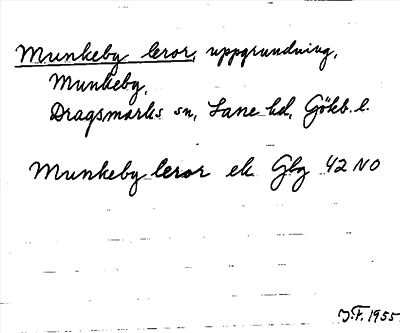 Munkeby leror, uppgrundning,
Munkeby,
Dragsmarks sn, Lane hd, Götb. l.
Munkeby leror ek Gbg 42 NO
J.F. 1955